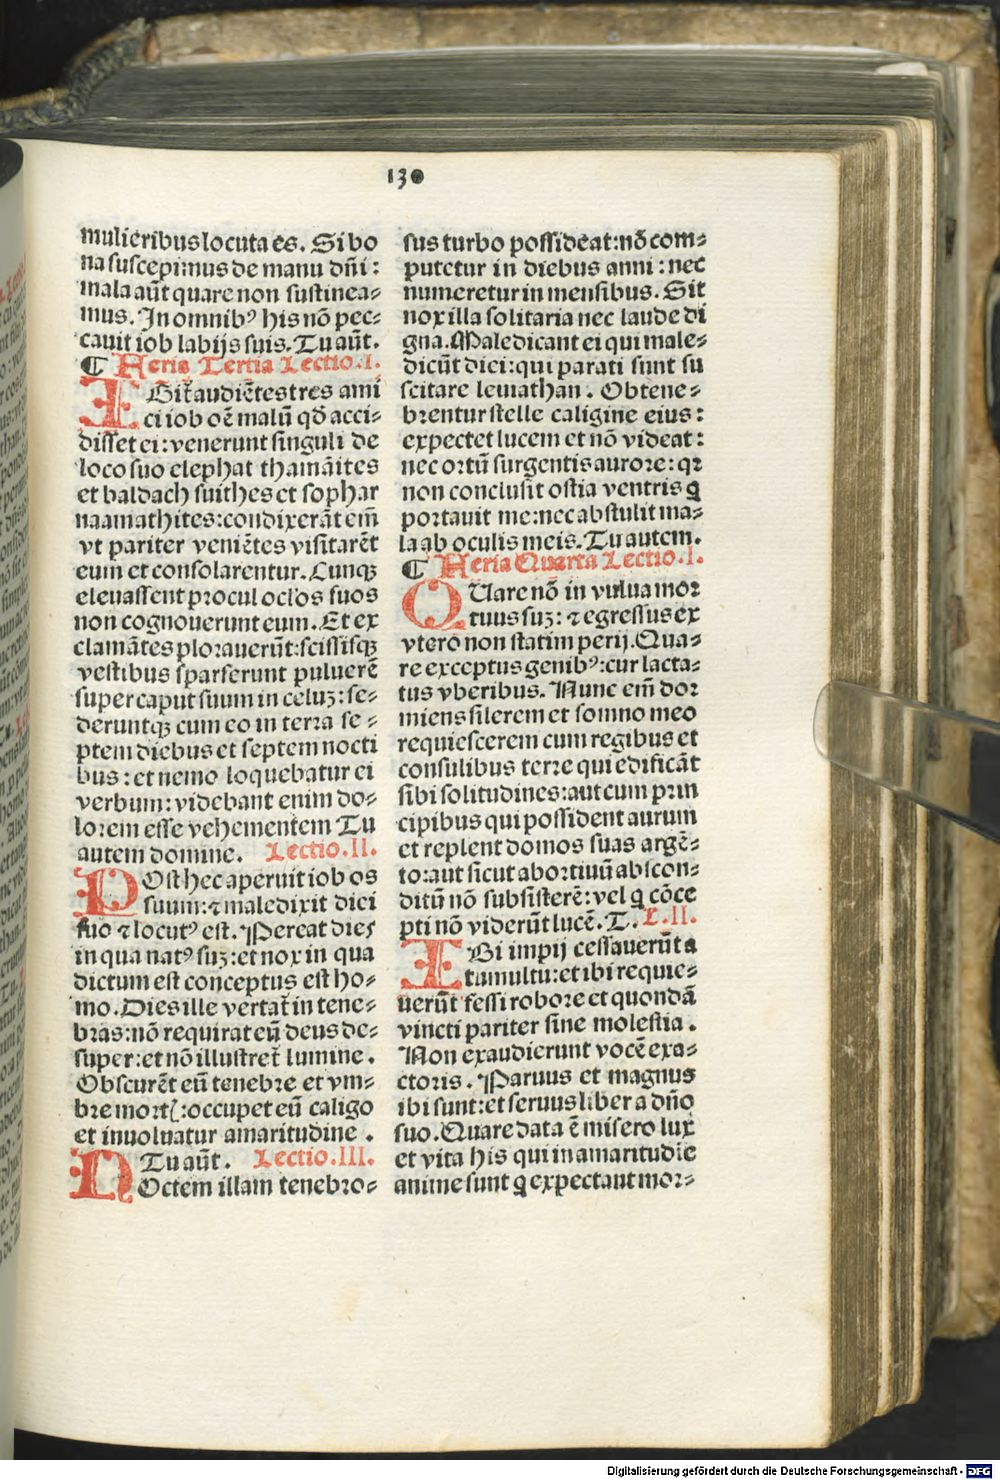 130
mulieribus locuta es. Si bo
na suscepimus de manu dñi:
mala aūt quare non sustinea⸗
mus. In omnibꝰ his nō pec⸗
cauit iob labijs suis. Tu aūt.
¶ Feria Tertia Lectio.I.
IGit̄ audiētes tres ami
ci iob oēm malū qđ acci⸗
disset ei: venerunt singuli de
loco suo elephat thamāites
et baldach suithes et sophar
naamathites: condixerāt em̄
vt pariter veniētes visitarēt
eum et consolarentur. Cunqꝫ
eleuassent procul oclōs suos
non cognouerunt eum. Et ex
clamātes plorauerūt: scissisqꝫ
vestibus sparserunt puluerē
super caput suum in celuꝫ: se⸗
deruntqꝫ cum eo in terra se⸗
ptem diebus et septem nocti
bus: et nemo loquebatur ei
verbum: videbant enim do⸗
lorem esse vehementem Tu
autem domine. Lectio.II.
POst hec aperuit iob os
suum: ⁊ maledixit dici
suo ⁊ locutꝰ est. Pereat dies
in qua natꝰ suꝫ: et nox in qua
dictum est conceptus est ho⸗
mo. Dies ille vertat̄ in tene⸗
bras: nō requirat eū deus de⸗
super: et nō illustret̄ lumine.
Obscurēt eū tenebre et vm⸗
bre mortꝭ: occupet eū caligo
et inuoluatur amaritudine.
Tu aūt. Lectio.III.
NOctem illam tenebro⸗
sus turbo possideat: nō com⸗
putetur in diebus anni: nec
numeretur in mensibus. Sit
nox illa solitaria nec laude di
gna. Maledicant ei qui male⸗
dicūt diei: qui parati sunt su
scitare leuiathan. Obtene⸗
brentur stelle caligine eius:
expectet lucem et nō videat:
nec ortū surgentis aurore: qꝛ
non conclusit ostia ventris q̄
portauit me: nec abstulit ma⸗
la ab oculis meis. Tu autem.
¶ Feria Quarta Lectio.I.
QUare nō in vulua mor
tuus suꝫ: ⁊ egressus ex
vtero non statim perij. Qua⸗
re exceptus genibꝰ: cur lacta⸗
tus vberibus. Nunc em̄ dor
miens silerem et somno meo
requiescerem cum regibus et
consulibus terre qui edificāt
sibi solitudines: aut cum prin
cipibus qui possident aurum
et replent domos suas argē⸗
to: aut sicut abortiuū abscon⸗
ditū nō subsisterē: vel q̄ cōce
pti nō viderūt lucē. T. L.II.
IBi impij cessauerūt a
tumultu: et ibi requie⸗
uerūt fessi robore et quondā
vincti pariter sine molestia.
Non exaudierunt vocē exa⸗
ctoris. Paruus et magnus
ibi sunt: et seruus liber a dño
suo. Quare data ē misero lux
et vita his qui in amaritudīe
anime sunt q̄ expectant mor⸗
Digitalisierung gefördert durch die Deutsche Forschungsgemeinschaft - DFG